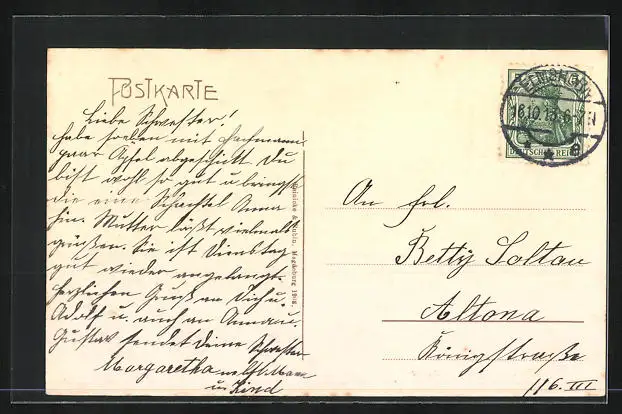 POSTKARTE
Liebe Schwester!
habe soeben mit Hachmann
paar Äpfel abgeschickt Du
bist wohl so gut u bringst
die eine Schachtel Anna
hin. Mutter läßt vielmals
grüßen. Sie ist Dienstag
gut wieder angelangt.
Herzlichen Gruß an Dich u.
Adolf u. auch an Anna u.
Gustav sendet Deine Schwester
Margaretha nebst Mann
u. Kind
Magdeburg 1908.
6.10.13.6-7N
DEUTSCHES REICH
An Frl.
Betty Soltau
Altona
Königstraße
116. III